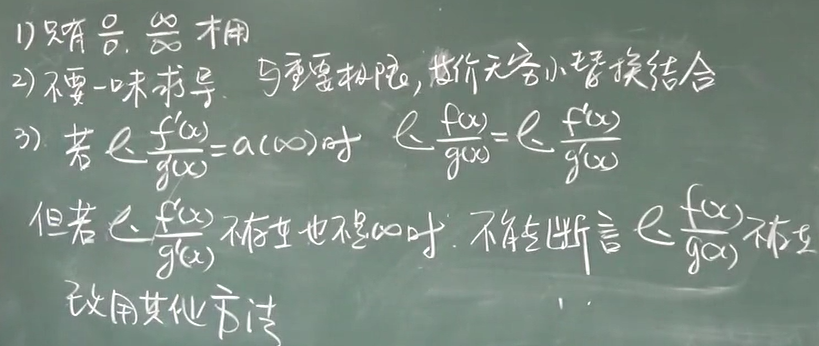 1) 只有 0/0, ∞/∞ 才用
2) 不要一味求导. 与重要极限, 等价无穷小替换结合
3). 若 lim f'(x)/g'(x) = a(∞) 时 lim f(x)/g(x) = lim f'(x)/g'(x)
但若 lim f'(x)/g'(x) 不存在也不是∞时. 不能断言 lim f(x)/g(x) 不存在
改用其他方法